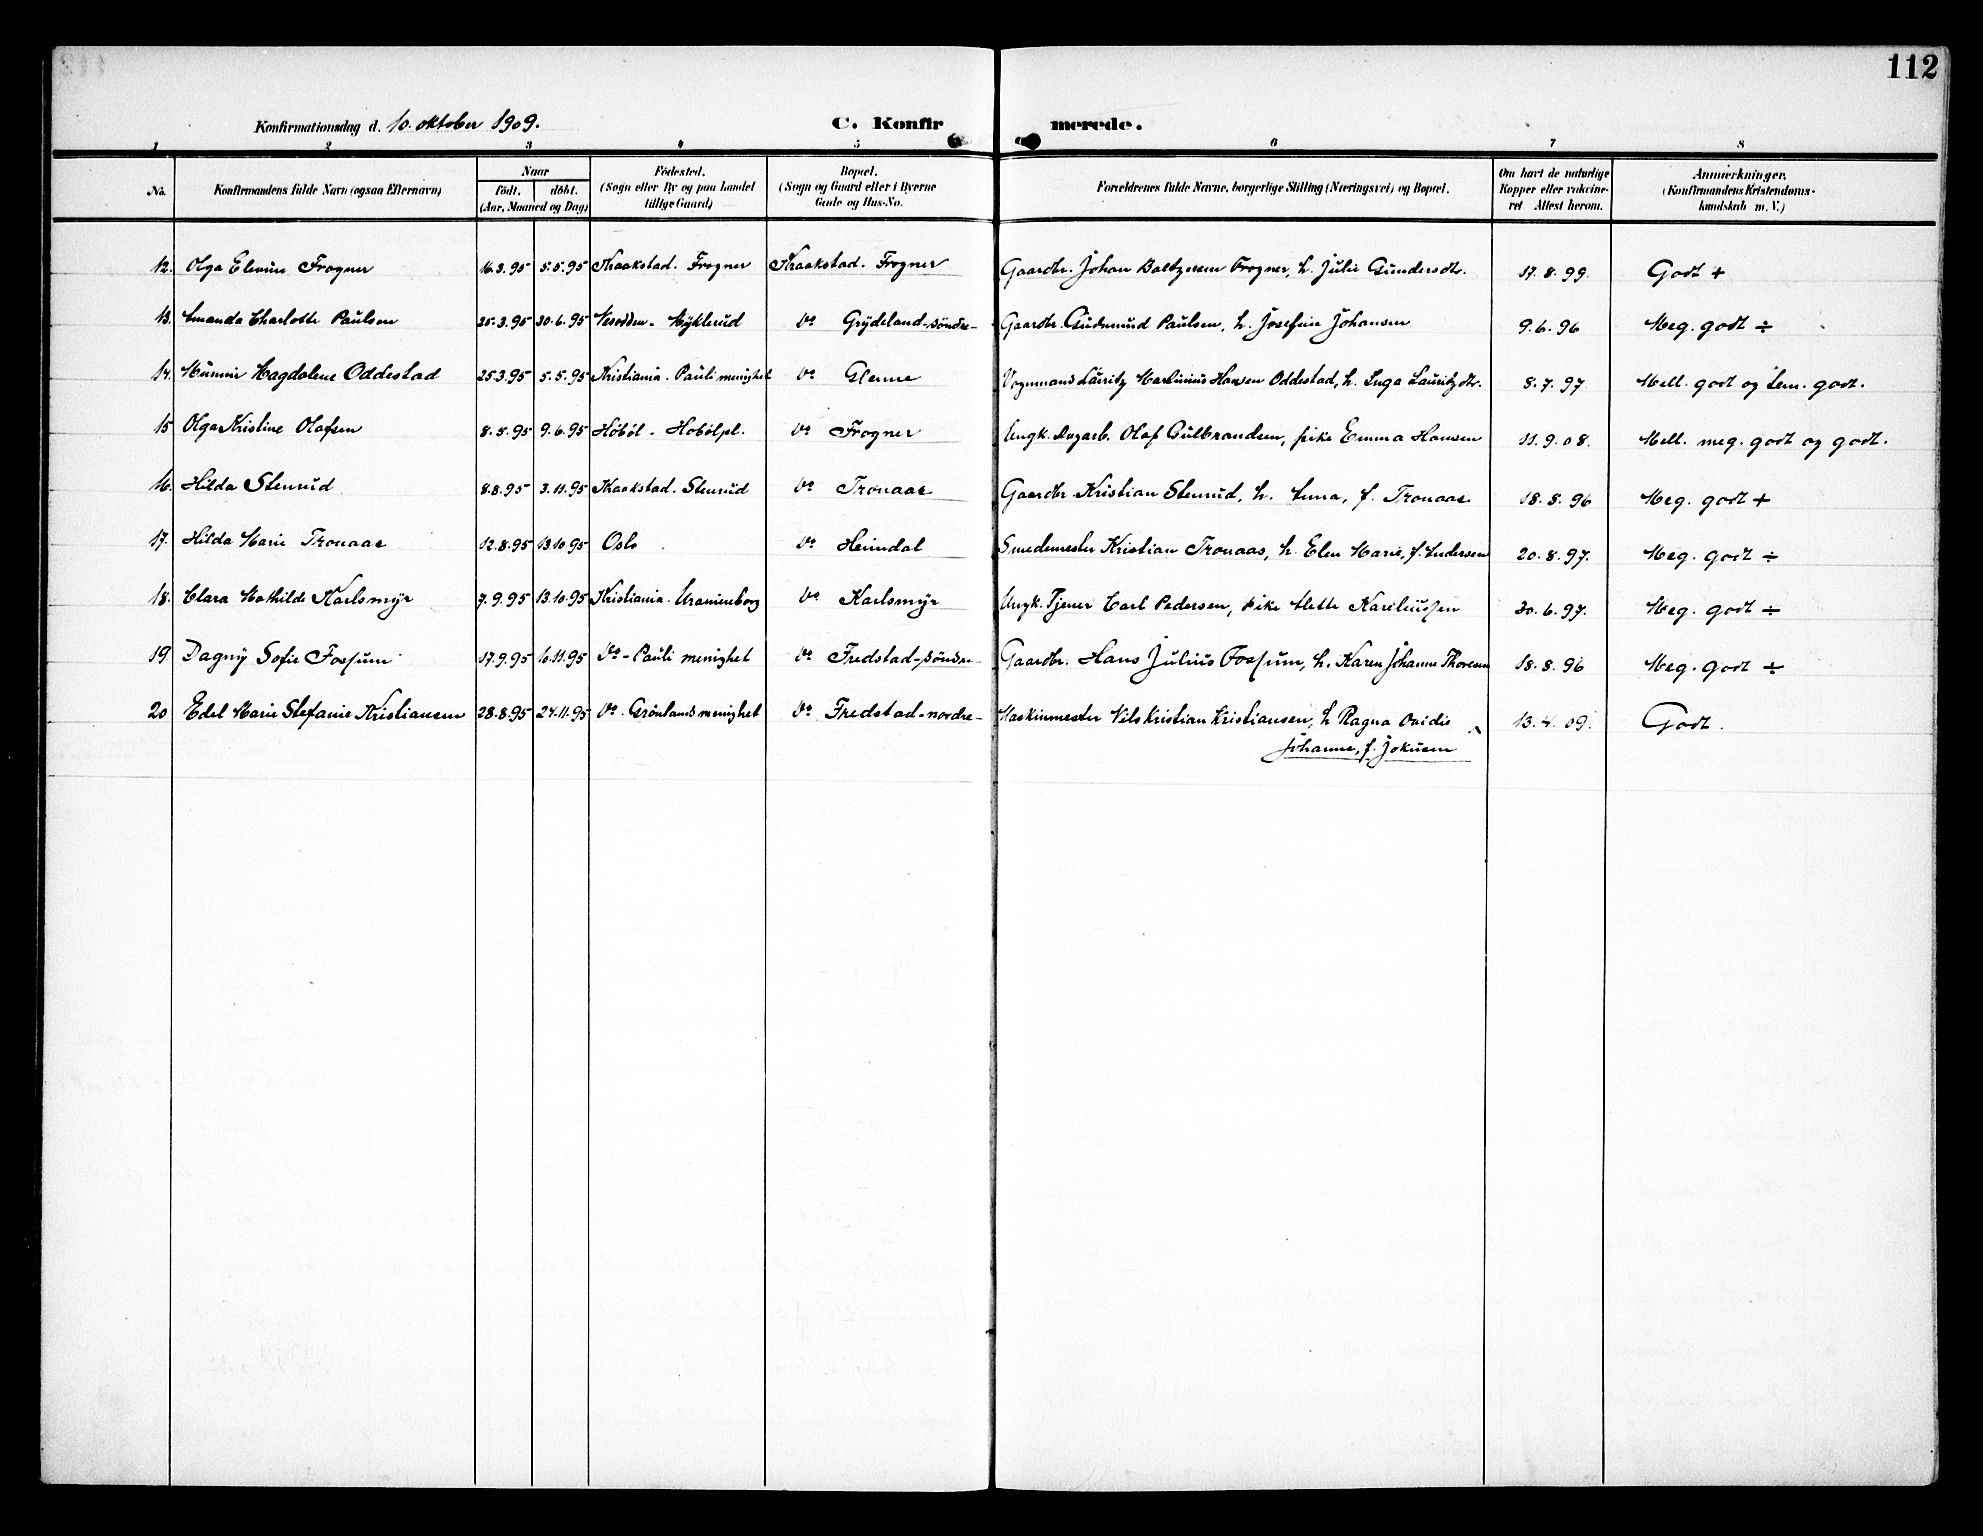 112
Konfirmationsdag d. 10. oktober 1909. C. Konfir merede.
1 2 3 4 5 6 7 8
No. Konfirmandens fulde Navn (ogsaa Efternavn) Naar født. døbt. (Aar, Maaned og Dag) Fødested. (Sogn eller By og paa Landet tillige Gaard) Bopæl. (Sogn og Gaard eller i Byerne Gade og Hus-No. Forældrenes fulde Navne, borgerlige Stilling (Næringsvei) og Bopæl. Om havt de naturlige Kopper eller vakcineret Attest herom. Anmærkninger. (Konfirmandens Kristendomskundskab m. V.)
12. Olga Elevine Frogner 16.3.95 5.5.95 Kraakstad. Frogner Kraakstad. Frogner Gaardbr. Johan Baltzersen Frogner, h. Julie Gundersdtr. 17.8.99. Godt +
13. Amanda Charlotte Paulsen 25.3.95 30.6.95 Nesodden. Myklerud Do Grydeland-søndre- Gaardbr. Gudmund Paulsen, h. Josefine Johansen 9.6.96 Meg. godt ÷
14. Magdalene Oddestad 25.3.95 5.5.95 Kristiania. Pauli menighet Do Glenne Vognmand Lauritz Martinius Hansen Oddestad, h. Inga Lauritzdtr. 8.7.97 Mell. godt og tem. godt.
15 Olga Kristine Olafsen 8.5.95 9.6.95 Høbøl. Hobølpl. Do Frogner Ungk. Dagarb. Olaf Gulbrandsen, pike Emma Hansen 11.9.08. Mell. meg. godt og godt.
16. Hilda Stenrud 8.8.95 3.11.95 Kraakstad. Stenrud Do Tronaas Gaardbr. Kristian Stenrud, h. Anna, f. Tronaas 18.8.96 Meg. godt +
17. Hilda Marie Tronaas 12.8.95 13.10.95 Oslo Do Heimdal Smedemester Kristian Tronaas, h. Elen Marie, f. Andersen 20.8.97. Meg. godt ÷
18. Clara Mathilde Karlsmyr 7.9.95 13.10.95 Kristiania. Uranienborg Do Karlsmyr Ungk. Tjener Carl Pedersen, pike Mette Kareliussen 30.6.97. Meg. godt ÷
19. Dagny Sofie Fossum 17.9.95 10.11.95 Do - Pauli menighet Do Fredstad-søndre- Gaardbr. Hans Julius Fossum, h. Karen Johanne Thoresen 18.8.96 Meg. godt ÷
20 Edel Marie Stefanie Kristiansen 28.8.95 24.11.95 Do. Grønlands menighet Do Fredstad-nordre- Maskinmester Nils Kristian Kristiansen, h. Ragna Ovidie 13.4.09. Godt.
Johanne, f. Joknsen